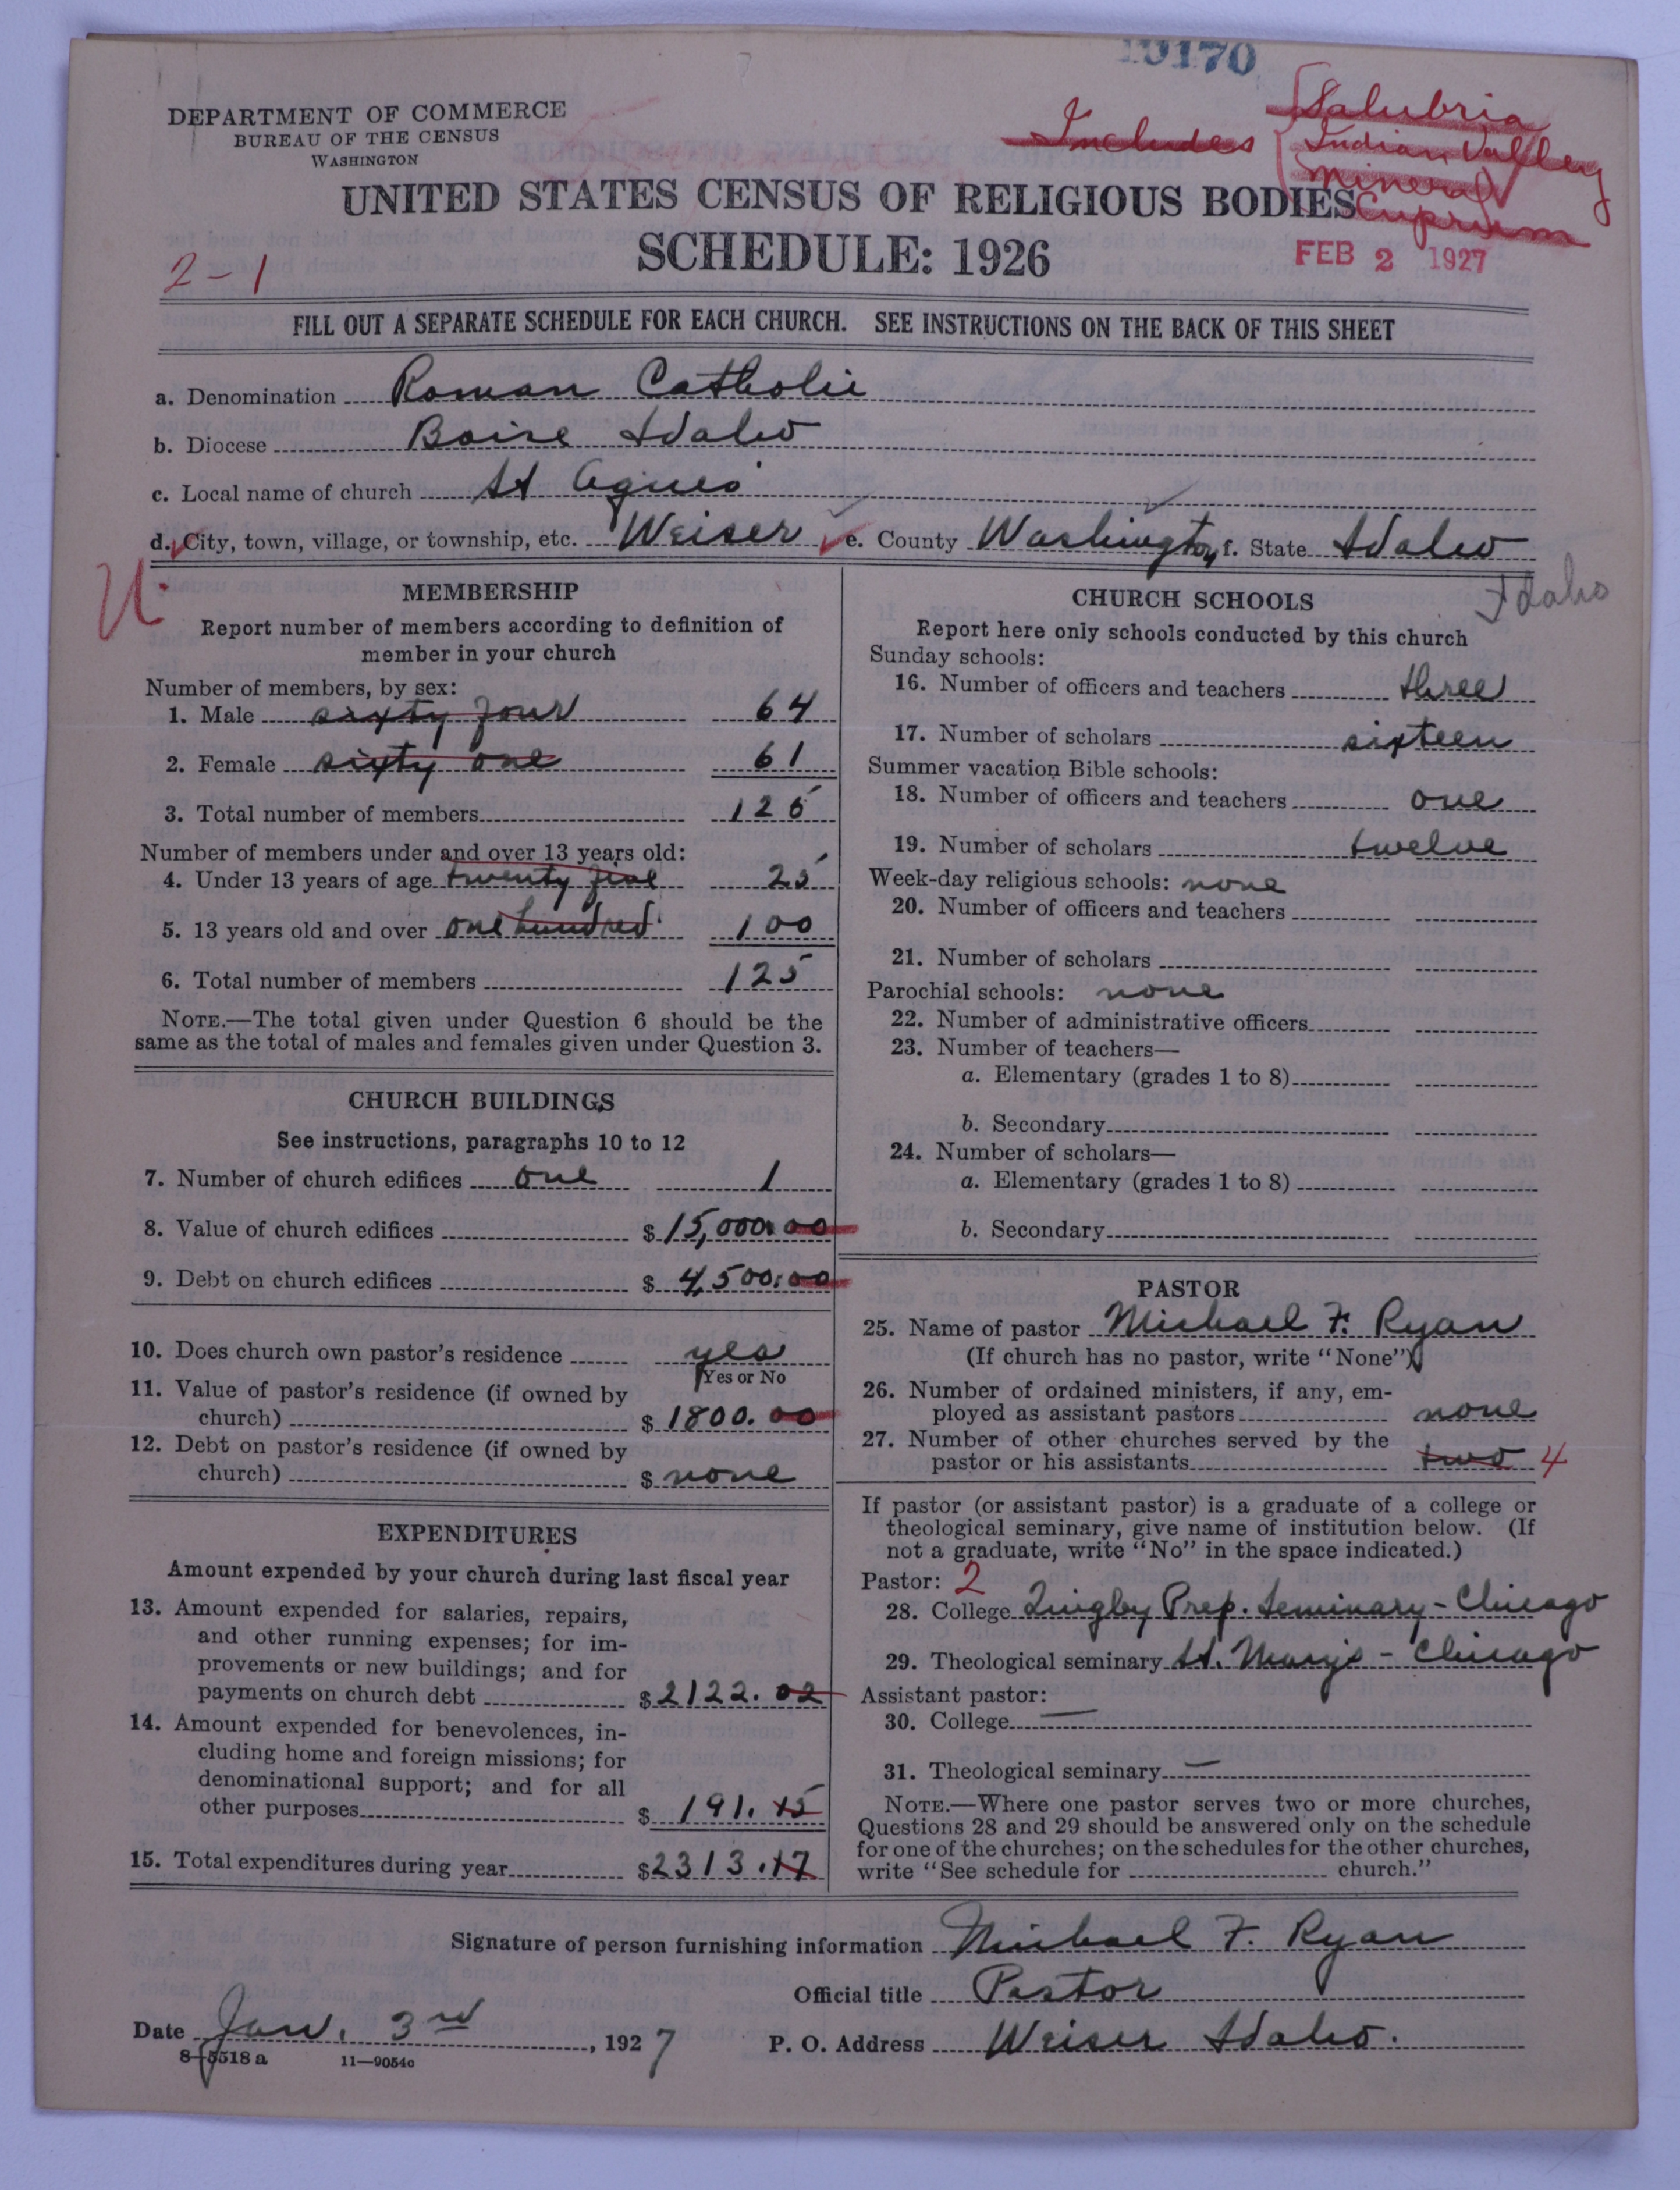 19170
DEPARTMENT OF COMMERCE
BUREAU OF THE CENSUS
WASHINGTON
Includes { Salubria
Indian Valley
Mineral
Cuprum
UNITED STATES CENSUS OF RELIGIOUS BODIES
SCHEDULE: 1926
FEB 2 1927
2-1
FILL OUT A SEPARATE SCHEDULE FOR EACH CHURCH. SEE INSTRUCTIONS ON THE BACK OF THIS SHEET
a. Denomination Roman Catholic
b. Diocese Boise Idaho
c. Local name of church St Agnes
d. City, town, village, or township, etc. Weiser e. County Washington f. State Idaho
Idaho
U.
MEMBERSHIP
Report number of members according to definition of
member in your church
Number of members, by sex:
1. Male sixty four 64
2. Female sixty one 61
3. Total number of members 125
Number of members under and over 13 years old:
4. Under 13 years of age twenty five 25
5. 13 years old and over one hundred 100
6. Total number of members 125
NOTE.—The total given under Question 6 should be the
same as the total of males and females given under Question 3.
CHURCH BUILDINGS
See instructions, paragraphs 10 to 12
7. Number of church edifices one 1
8. Value of church edifices $ 15,000.00
9. Debt on church edifices $ 4,500.00
10. Does church own pastor's residence yes
Yes or No
11. Value of pastor's residence (if owned by
church) $ 1800.00
12. Debt on pastor's residence (if owned by
church) $ none
EXPENDITURES
Amount expended by your church during last fiscal year
13. Amount expended for salaries, repairs,
and other running expenses; for im-
provements or new buildings; and for
payments on church debt $ 2122.02
14. Amount expended for benevolences, in-
cluding home and foreign missions; for
denominational support; and for all
other purposes $ 191.15
15. Total expenditures during year $ 2313.17
CHURCH SCHOOLS
Report here only schools conducted by this church
Sunday schools:
16. Number of officers and teachers three
17. Number of scholars sixteen
Summer vacation Bible schools:
18. Number of officers and teachers one
19. Number of scholars twelve
Week-day religious schools: none
20. Number of officers and teachers
21. Number of scholars
Parochial schools: none
22. Number of administrative officers
23. Number of teachers—
a. Elementary (grades 1 to 8)
b. Secondary
24. Number of scholars—
a. Elementary (grades 1 to 8)
b. Secondary
PASTOR
25. Name of pastor Michael F. Ryan
(If church has no pastor, write "None")
26. Number of ordained ministers, if any, em-
ployed as assistant pastors none
27. Number of other churches served by the
pastor or his assistants two 4
If pastor (or assistant pastor) is a graduate of a college or
theological seminary, give name of institution below. (If
not a graduate, write "No" in the space indicated.)
Pastor: 2
28. College Quigley Prep. Seminary - Chicago
29. Theological seminary St. Mary's - Chicago
Assistant pastor:
30. College —
31. Theological seminary —
NOTE.—Where one pastor serves two or more churches,
Questions 28 and 29 should be answered only on the schedule
for one of the churches; on the schedules for the other churches,
write "See schedule for church."
Signature of person furnishing information Michael F. Ryan
Official title Pastor
Date Jan. 3rd, 1927 P. O. Address Weiser Idaho.
8-5518 a 11-9054c